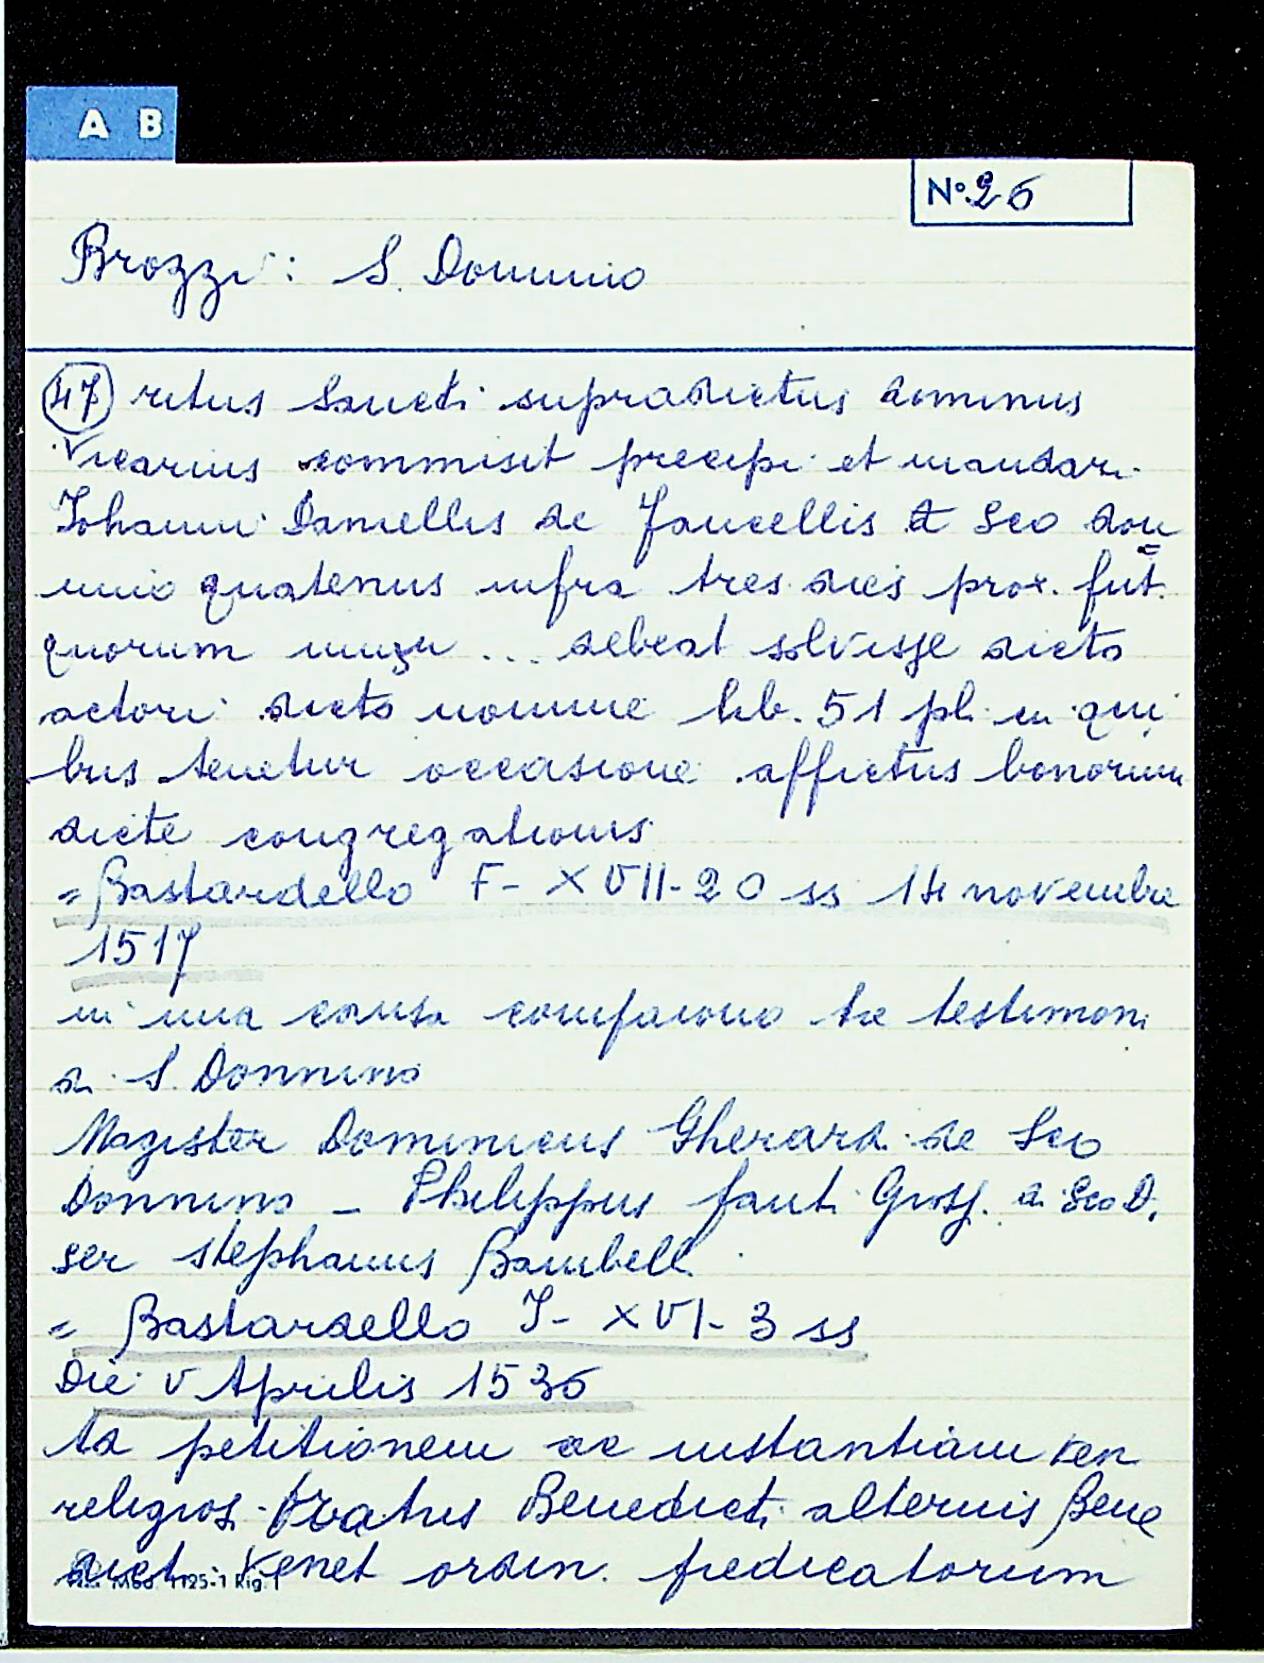 A B
No. 26
Brozzi: S. Donnino
47 ritus Sancti supradictus dominus
Vicarius commisit precepi et mandari
Iohanni Daniellis de Fancellis a Sco don
nino quatenus infra tres dies prox. fut.
quorum ... debeat solvisse dicto
actori dicto nomine lib. 51 pl. in qui
bus tenetur occasione affictus bonorum
dicte congregationis
= Bastardello F- XVII-20 ss 14 novembre
1517
in una causa compaiono tre testimoni
di S. Donnino
Magister Dominicus Gherardi de Sco
Donnino - Philippus fauti a Sco D.
ser Stephanus Bambelli
= Bastardello J- XVI-3 ss
Die V Aprilis 1536
Ad petitionem ac instantiam ven
religios. fratris Benedicti alterius Bene
dicti Venet ordin. predicatorum
Mod. 1125-1 Rig. 1